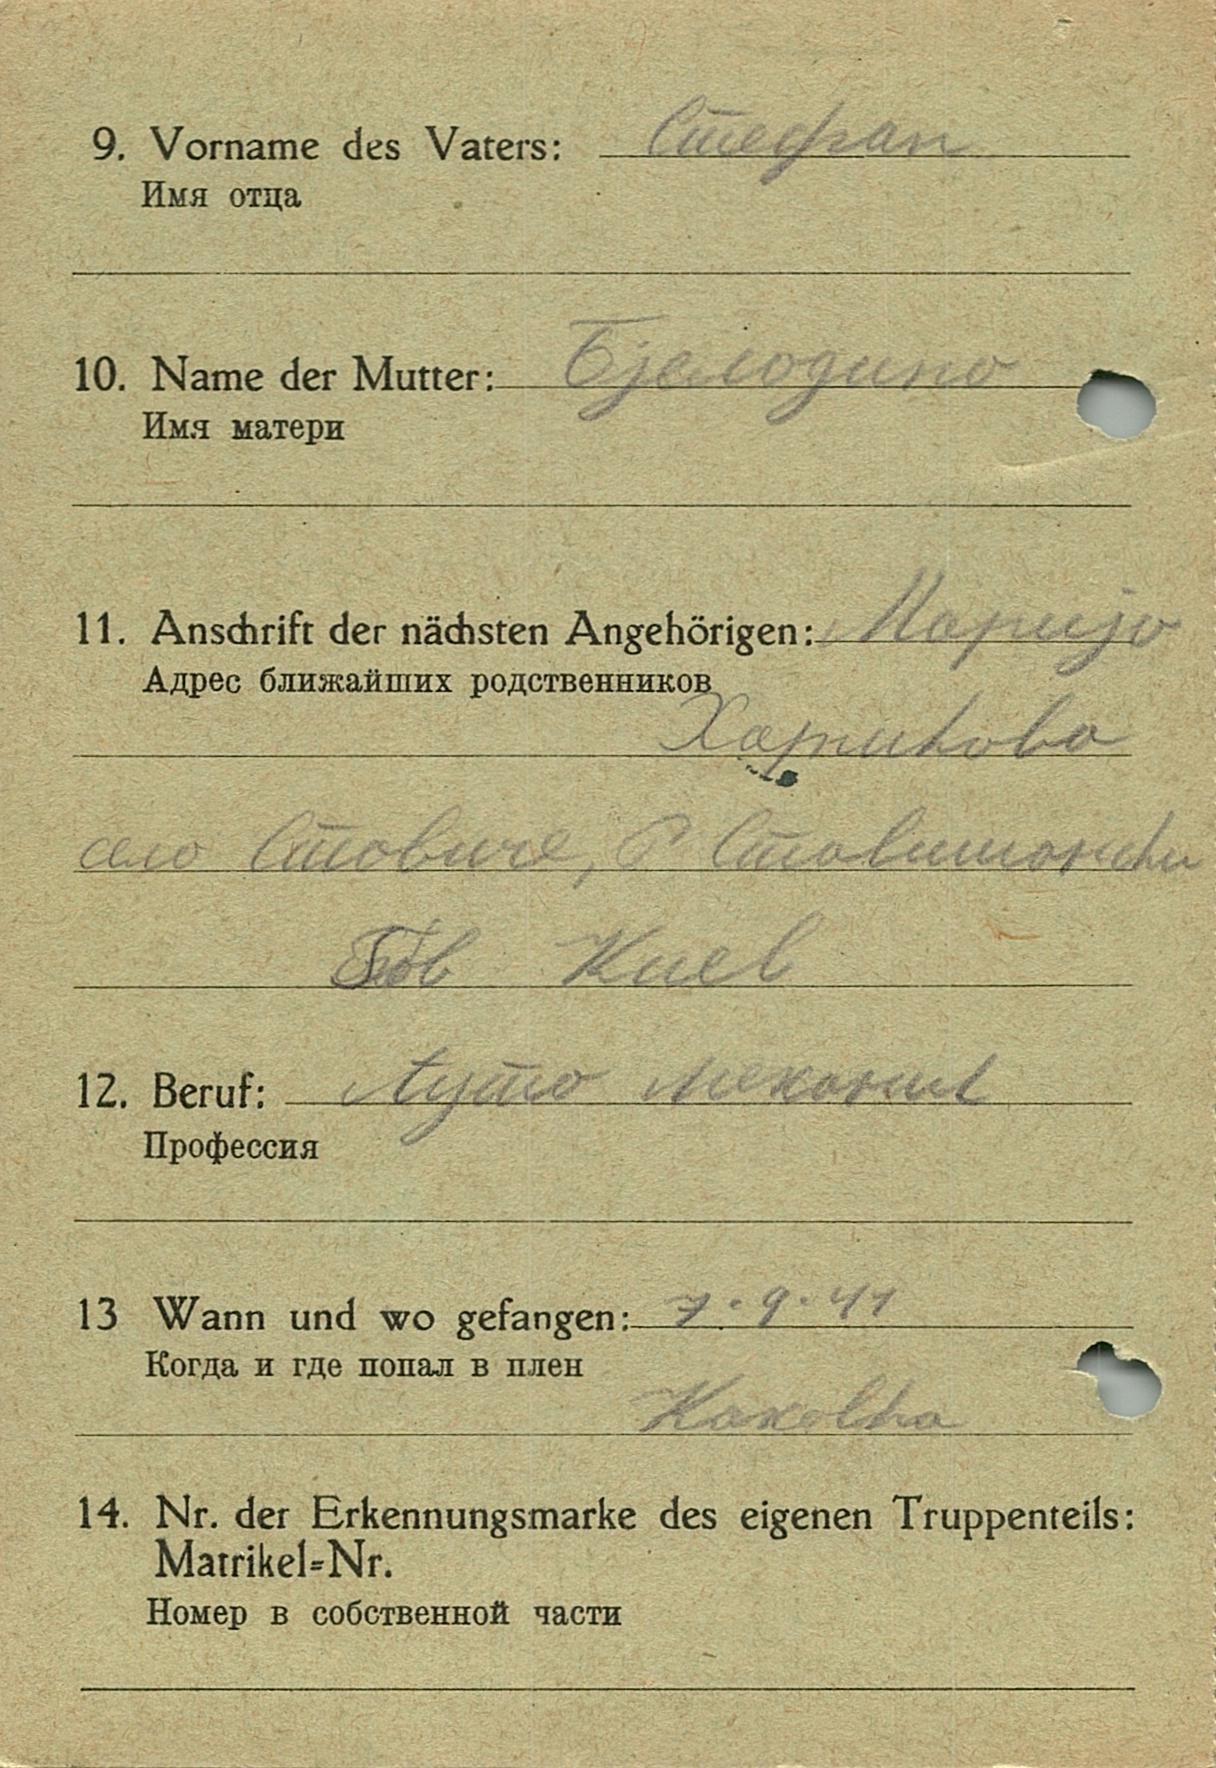 9. Vorname des Vaters: Стефан
Имя отца
10. Name der Mutter: Бјелодино
Имя матери
11. Anschrift der nächsten Angehörigen: Марија
Адрес ближайших родственников
Харикова
село Ставиче, Р Ставишански
Киев
12. Beruf: Ауто механик
Профессия
13 Wann und wo gefangen: 7.9.41
Когда и где попал в плен
Каховка
14. Nr. der Erkennungsmarke des eigenen Truppenteils:
Matrikel=Nr.
Номер в собственной части